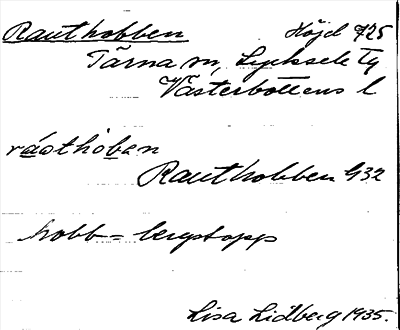 Rauthobben Höjd 725
Tärna sn, Lycksele Tg
Västerbottens l
råothoben
Rauthobben G32
hobb = bergstopp
Lisa Lidberg 1935.